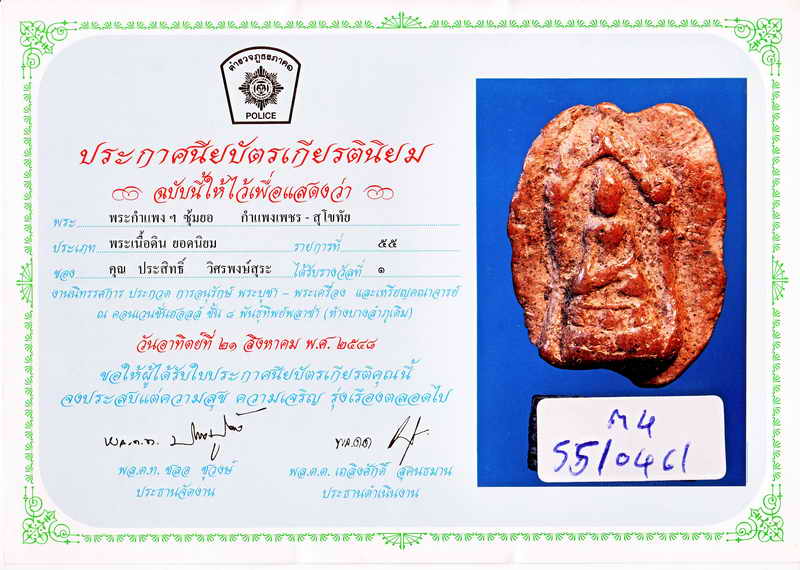 ตำรวจภูธรภาค๑
POLICE
ประกาศนียบัตรเกียรตินิยม
ฉบับนี้ให้ไว้เพื่อแสดงว่า
พระ พระกำแพง ฯ ซุ้มยอ กำแพงเพชร - สุโขทัย
ประเภท พระเนื้อดิน ยอดนิยม รายการที่ ๕๕
ของ คุณ ประสิทธิ์ วิศรพงษ์สุระ ได้รับรางวัลที่ ๑
งานนิทรรศการ ประกวด การอนุรักษ์ พระบูชา – พระเครื่อง และเหรียญคณาจารย์
ณ คอนเวนชั่นฮอลล์ ชั้น ๘ พันธุ์ทิพย์พลาซ่า (ห้างบางลำภูเดิม)
วันอาทิตย์ที่ ๒๑ สิงหาคม พ.ศ. ๒๕๔๘
ขอให้ผู้ได้รับใบประกาศนียบัตรเกียรติคุณนี้
จงประสบแต่ความสุข ความเจริญ รุ่งเรืองตลอดไป
พล.ต.ท.
พล.ต.ท. ชลอ ชูวงษ์ พล.ต.ต. เถลิงศักดิ์ สุคนธมาน
ประธานจัดงาน ประธานดำเนินงาน
55/0461